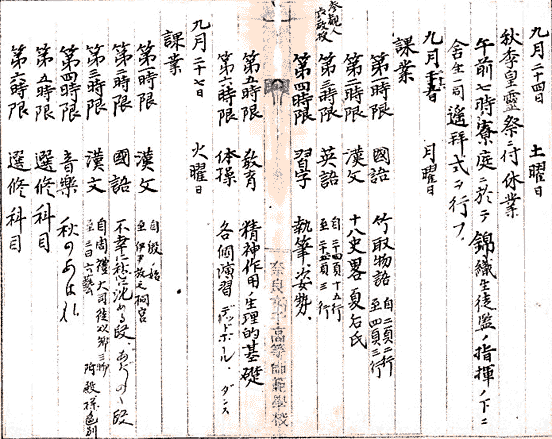 九月二十四日　土曜日
秋季皇靈祭ニ付休業
午前七時寮庭ニ於テ錦織生徒監ノ指揮ノ下ニ
舍生一同遙拜式ヲ行フ、
九月二十六日　月曜日
課業
第一時限　國語　竹取物語　自二頁二行 至四頁三行
第二時限　漢文　十八史畧夏后氏
第三時限　英語　自二十四頁十五行 至二十五頁三行
第四時限　習字　執筆ノ姿勢、
參觀人
第五時限　教育　精神作用ノ生理的基礎
第六時限　体操　各個演習　デッドボール、ダンス
奈良女子高等師範學校
九月二十七日　火曜日
課業
第一時限　漢文　自殷始 至
第二時限　國語　不幸に沈める段、
第三時限　漢文　自周禮大司徒以鄉三物 至三曰六藝
第四時限　音樂　秋のあはれ
第五時限　選修科目
第六時限　選修科目